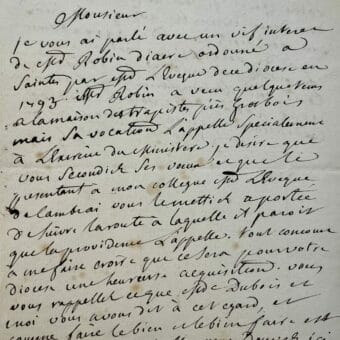 Monsieur
je vous ai parlé avec un vif interet
de Mr Robin diacre ordonné a
Saintes par Mr L'Eveque de ce diocese en
1793. Mr Robin a vecu quelque tems
a la maison des trapistes près
mais sa vocation L'appelle specialement
a L'exercice du Ministere. je desire que
vous secondiez ses voeux et que le
presentant a mon collegue Mr L'Eveque
de Cambrai vous le mettiez a portée
de suivre la route a laquelle il paroit
que la providence L'appelle. tout concourt
a me faire croire que ce sera pour votre
diocese une heureuse acquisition. vous
vous rappellez ce que Mr Dubois et
moi vous avons dit a cet egard, et
comme faire le bien et le bien faire est